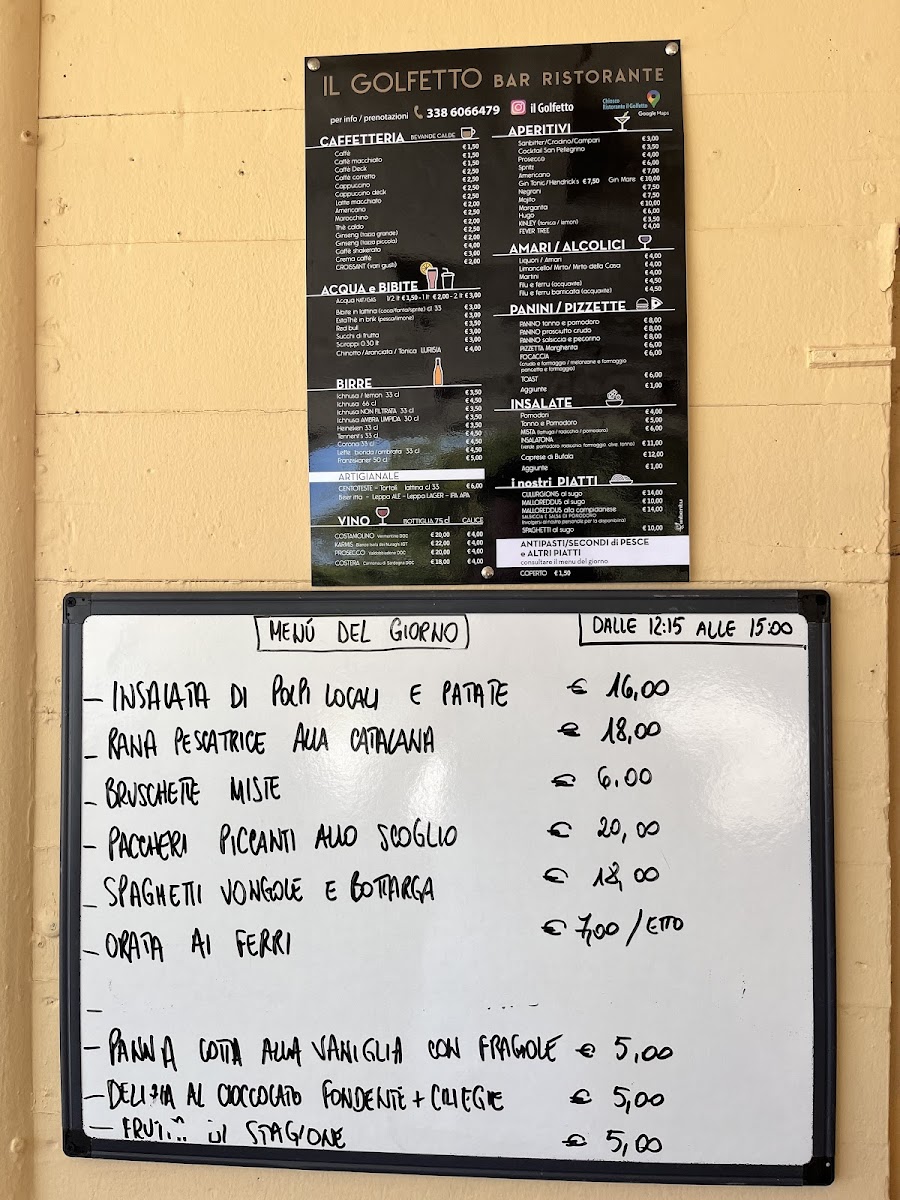 IL GOLFETTO BAR RISTORANTE
per info / prenotazioni 338 6066479 il Golfetto
Chiosco
Ristorante il Golfetto
Google Maps
CAFFETTERIA BEVANDE CALDE
Caffè € 1,50
Caffè macchiato € 1,50
Caffè Deck
Caffè corretto
Cappuccino
Cappuccino deck
Latte macchiato
Americano
Marocchino
Thè caldo
Ginseng (tazza grande)
Ginseng (tazza piccola)
Caffè shakerato
Crema caffè
CROISSANT (vari gusti) € 2,00
ACQUA e BIBITE
Acqua NAT/GAS 1/2 lt € 1,50 - 1 lt € 2,00 - 2 lt € 3,00
Bibite in lattina (coca/fanta/sprite) cl 33 € 3,00
EstaThè in brik (pesca/limone)
Red bull
Succhi di frutta
Sciroppi 0.30 lt € 3,00
Chinotto/Aranciata / Tonica LURISIA € 4,00
BIRRE
Ichnusa / lemon 33 cl € 3,50
Ichnusa 66 cl € 4,50
Ichnusa NON FILTRATA 33 cl € 3,50
Ichnusa AMBRA LIMPIDA 30 cl € 3,50
Heineken 33 cl € 3,50
Tennent's 33 cl € 4,50
Corona 33 cl € 4,50
Leffe bionda/ambrata 33 cl € 4,50
Franziskaner 50 cl € 5,00
ARTIGIANALE
CENTOTESTE - Tortolì lattina cl 33 € 6,00
Leppa ALE - Leppa LAGER - IPA APA
VINO BOTTIGLIA 75 cl CALICE
COSTAMOLINO Vermentino DOC € 20,00 € 4,00
KARMIS Bianco Isola dei Nuraghi IGT € 22,00 € 4,00
PROSECCO Valdobbiadene DOC € 20,00 € 4,00
COSTERA Cannonau di Sardegna DOC € 18,00 € 4,00
APERITIVI
Sanbitter/Crodino/Campari € 3,00
Cocktail San Pellegrino € 3,50
Prosecco € 4,00
Spritz € 6,00
Americano € 7,00
Gin Tonic/Hendrick's € 7,50 Gin Mare € 10,00
Negroni € 7,50
Mojito € 7,50
Margarita € 10,00
Hugo € 6,00
KINLEY (tonica / lemon) € 3,50
FEVER TREE € 4,00
AMARI / ALCOLICI
Liquori / Amari € 4,00
Limoncello/ Mirto/ Mirto della Casa € 4,00
Martini € 4,00
Filu e ferru (acquavite) € 4,50
Filu e ferru barricata (acquavite) € 4,50
PANINI / PIZZETTE
PANINO tonno e pomodoro € 8,00
PANINO prosciutto crudo € 8,00
PANINO salsiccia e pecorino € 8,00
PIZZETTA Margherita € 6,00
FOCACCIA € 6,00
(crudo e formaggio / melanzane e formaggio
pancetta e formaggio)
TOAST € 6,00
Aggiunte € 1,00
INSALATE
Pomodori € 4,00
Tonno e Pomodoro € 5,00
MISTA (lattuga / radicchio / pomodoro) € 6,00
INSALATONA
€ 11,00
Caprese di Bufala € 12,00
Aggiunte € 1,00
i nostri PIATTI
CULURGIONIS al sugo € 14,00
MALLOREDDUS al sugo € 10,00
MALLOREDDUS alla campidanese € 14,00
SALSICCIA E SALSA DI POMODORO
(rivolgersi al nostro personale per la disponibilità)
SPAGHETTI al sugo € 10,00
ANTIPASTI/SECONDI di PESCE
e ALTRI PIATTI
consultare il menu del giorno
COPERTO € 1,50
MENÚ DEL GIORNO
DALLE 12:15 ALLE 15:00
– INSALATA DI POLPI LOCALI E PATATE € 16,00
– RANA PESCATRICE ALLA CATALANA € 18,00
– BRUSCHETTE MISTE € 6,00
– PACCHERI PICCANTI ALLO SCOGLIO € 20,00
– SPAGHETTI VONGOLE E BOTTARGA € 18,00
– ORATA AI FERRI € 7,00 / ETTO
–
– PANNA COTTA ALLA VANIGLIA CON FRAGOLE € 5,00
– DELIZIA AL CIOCCOLATO FONDENTE + CILIEGIE € 5,00
– STAGIONE € 5,00